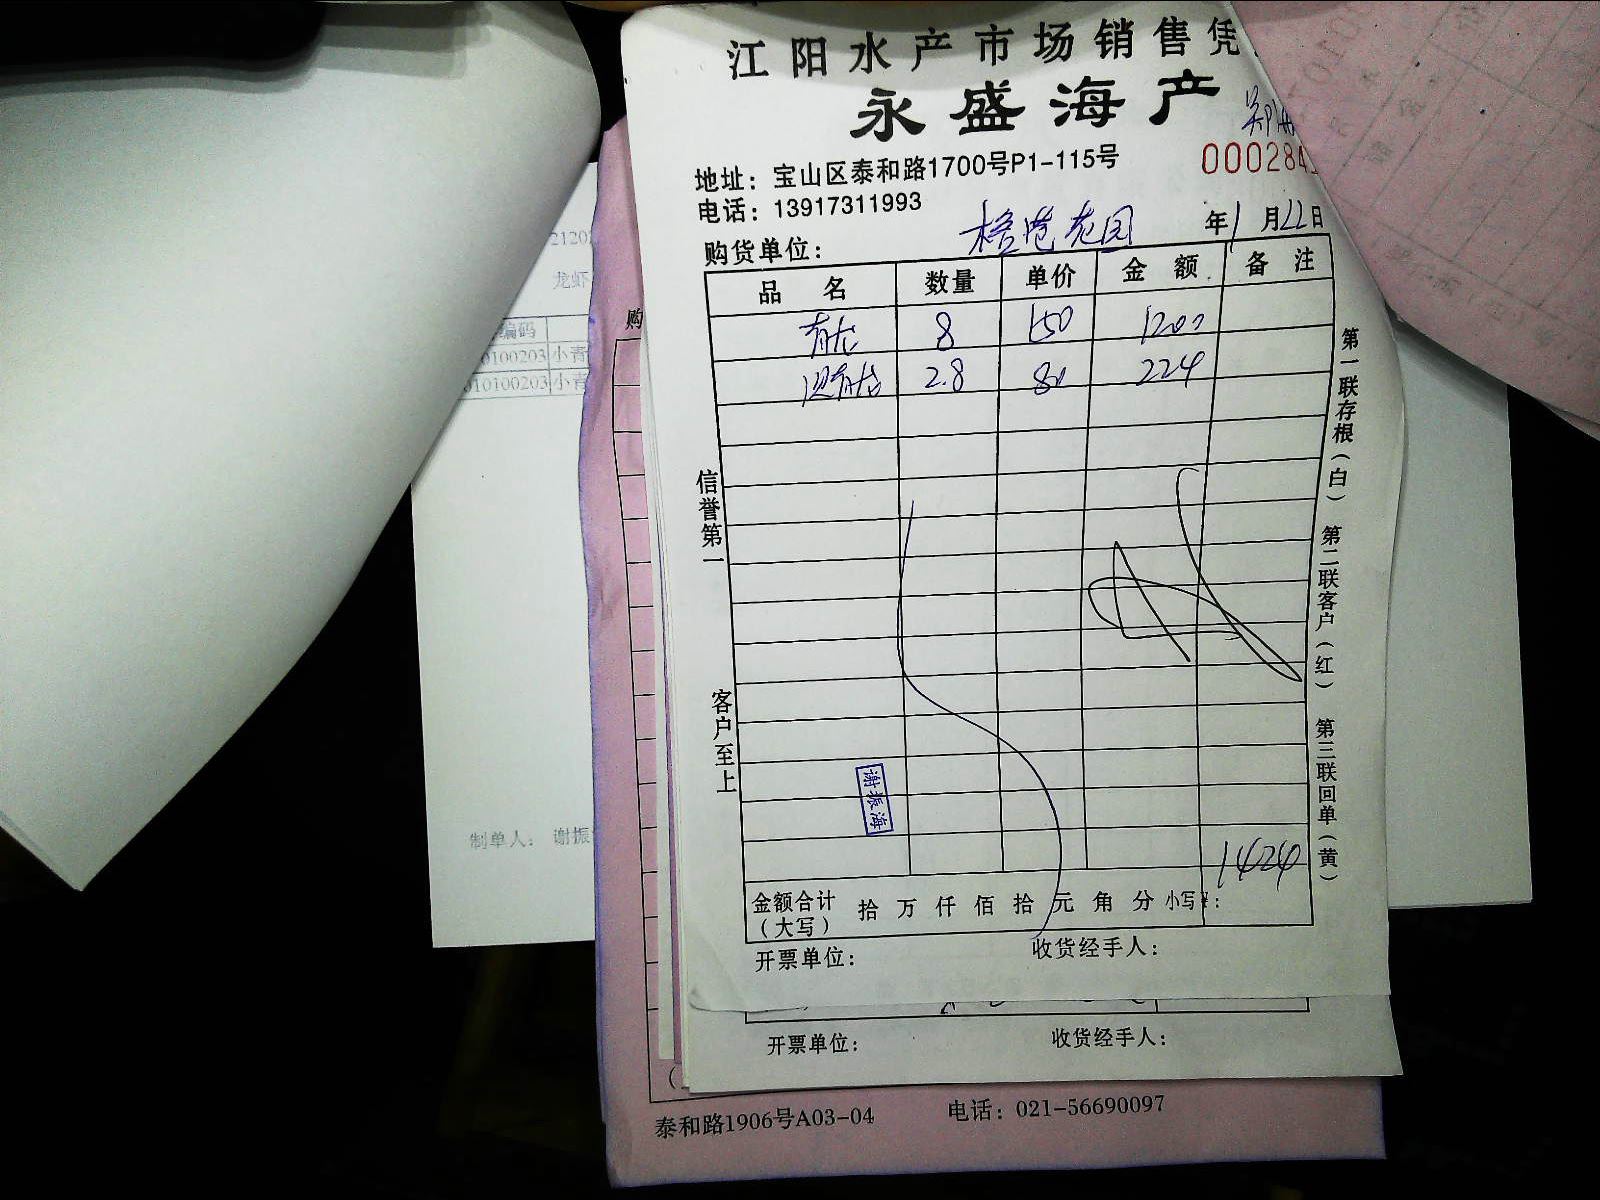 江阳水产市场销售凭
永盛海产
000284
地址：宝山区泰和路1700号P1-115号
电话：13917311993
购货单位： 花园 年1月22日
品名 数量 单价 金额 备注
青龙 8 150 1200
青龙 2.8 80 224
信誉第一
客户至上
第一联存根（白） 第二联客户（红） 第三联回单（黄）
谢振海
1424
金额合计（大写） 拾万仟佰拾元角分 小写¥：
开票单位： 收货经手人：
开票单位： 收货经手人：
泰和路1906号A03-04 电话：021-56690097
购
龙虾
编码
0100203 小青
010100203 小青
制单人： 谢振